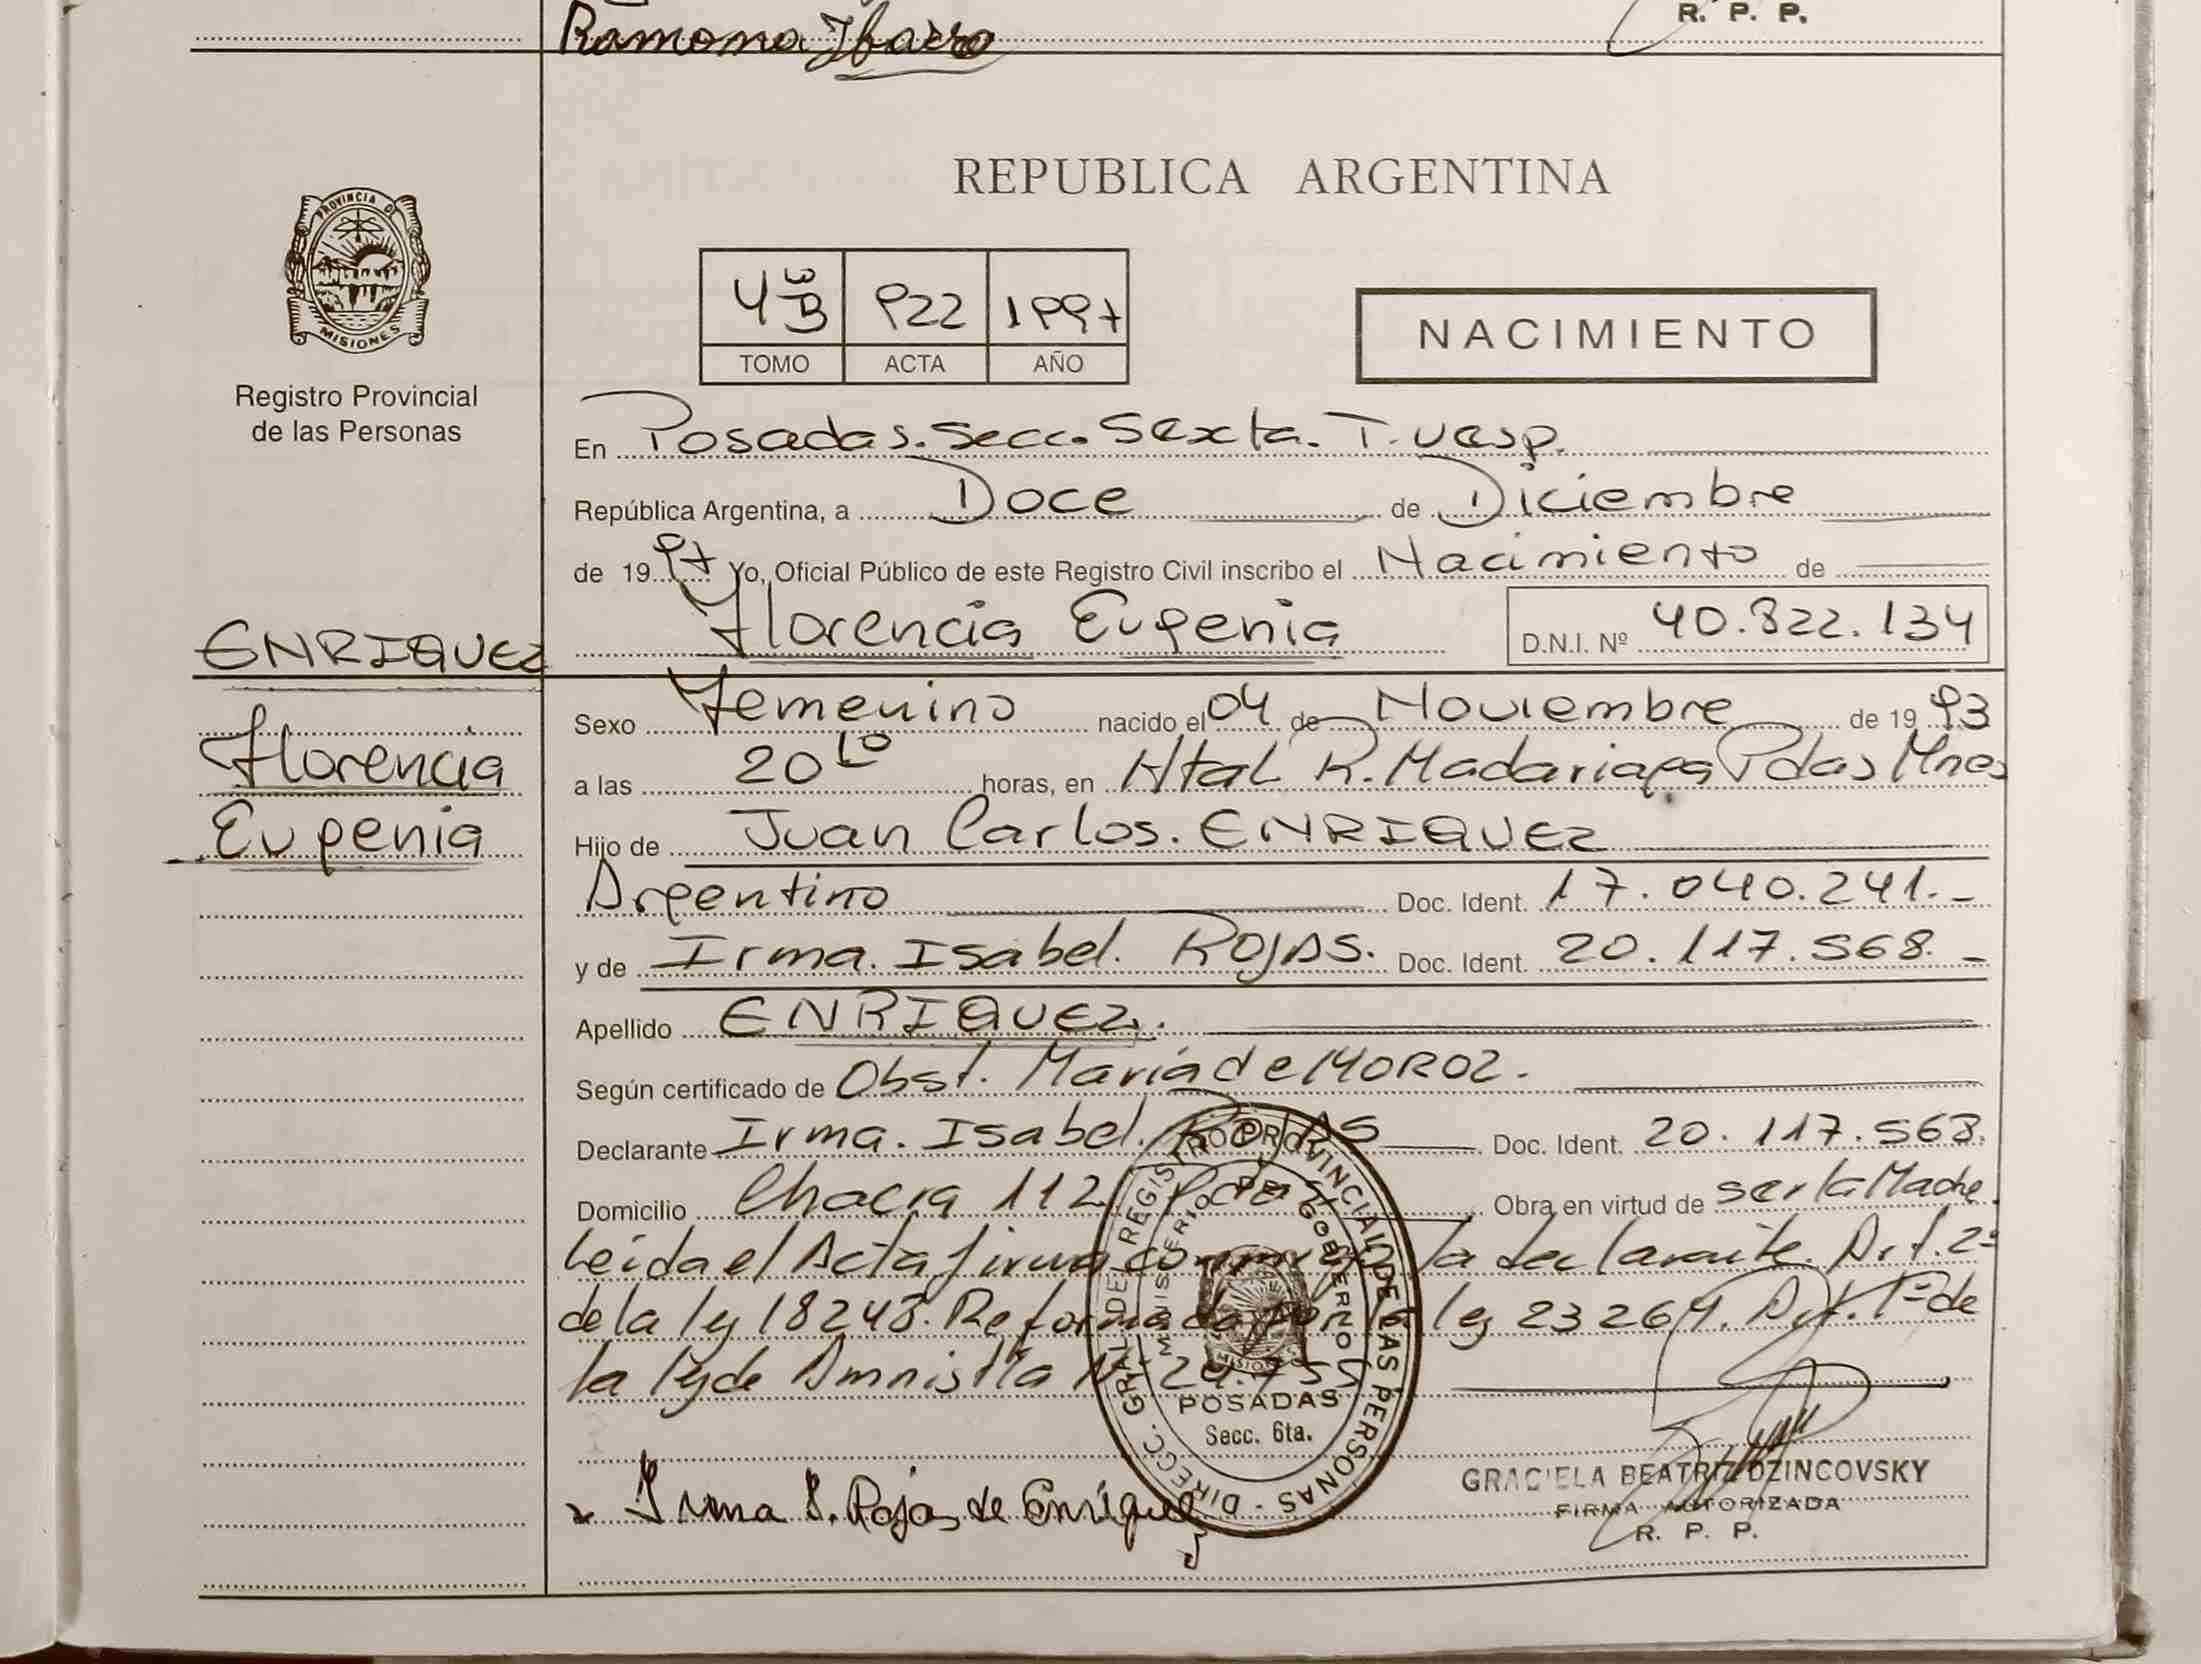 Ramona Ibarra
R. P. P.
PROVINCIA DE
MISIONES
Registro Provincial
de las Personas
REPUBLICA ARGENTINA
922 1997
TOMO ACTA AÑO
NACIMIENTO
En Posadas. Secc. Sexta. T. vesp.
República Argentina, a Doce de Diciembre
de 1997 Yo, Oficial Público de este Registro Civil inscribo el Nacimiento de
Florencia Eugenia D.N.I. Nº 40.822.134
ENRIQUEZ
Florencia
Eugenia
Sexo Femenino nacido el 04 de Noviembre de 1993
a las 20 horas, en Htal R. Madariaga Pdas Mnes
Hijo de Juan Carlos. ENRIQUEZ
Argentino Doc. Ident. 17.040.241.-
y de Irma. Isabel. ROJAS. Doc. Ident. 20.117.568.-
Apellido ENRIQUEZ.
Según certificado de Obst. María de MOROZ.
Declarante Irma. Isabel. ROJAS Doc. Ident. 20.117.568.
Domicilio Chacra 112 Pdas Obra en virtud de ser la Madre.
Leida el Acta firma conmigo la declarante. Art. 2º
de la ley 18248. Reformada por la ley 23264. Art. 1º de
la ley de Amnistía Nº 24.755
DIRECC. GRAL DE REGISTRO PROVINCIAL DE LAS PERSONAS
MINISTERIO DE GOBIERNO
MISIONES
POSADAS
Secc. 6ta.
Irma I. Rojas de Enriquez
GRACIELA BEATRIZ DZINCOVSKY
FIRMA AUTORIZADA
R. P. P.